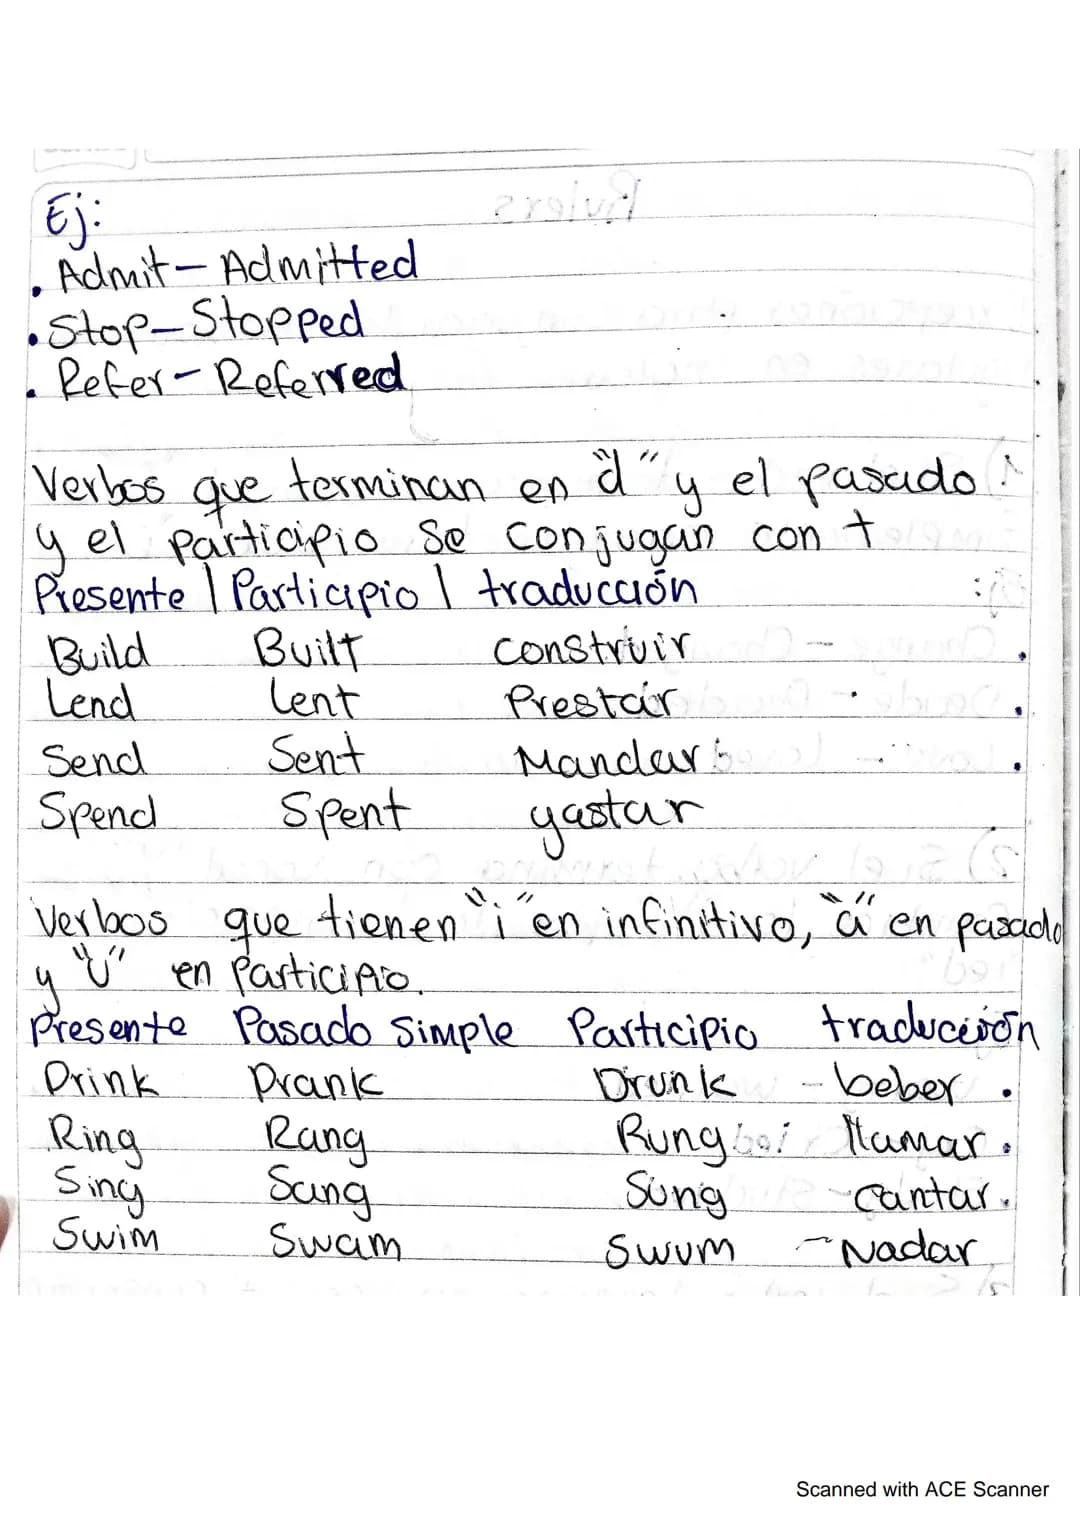 Ej:
. Admit - Admitted
. Stop - Stopped
. Refer - Referred
Verbos que terminan en "d" y el pasado
y el participio se conjugan con t
Presente | Participio | traducción
Build Built construir
Lend Lent Prestar
Send Sent Mandar
Spend Spent gastar
Verbos que tienen "i" en infinitivo, "a" en pasado
y "U" en Participio.
Presente Pasado Simple Participio traducción
Drink Drank Drunk - beber .
Ring Rang Rung llamar .
Sing Sang Sung - cantar .
Swim Swam Swum - Nadar
Scanned with ACE Scanner